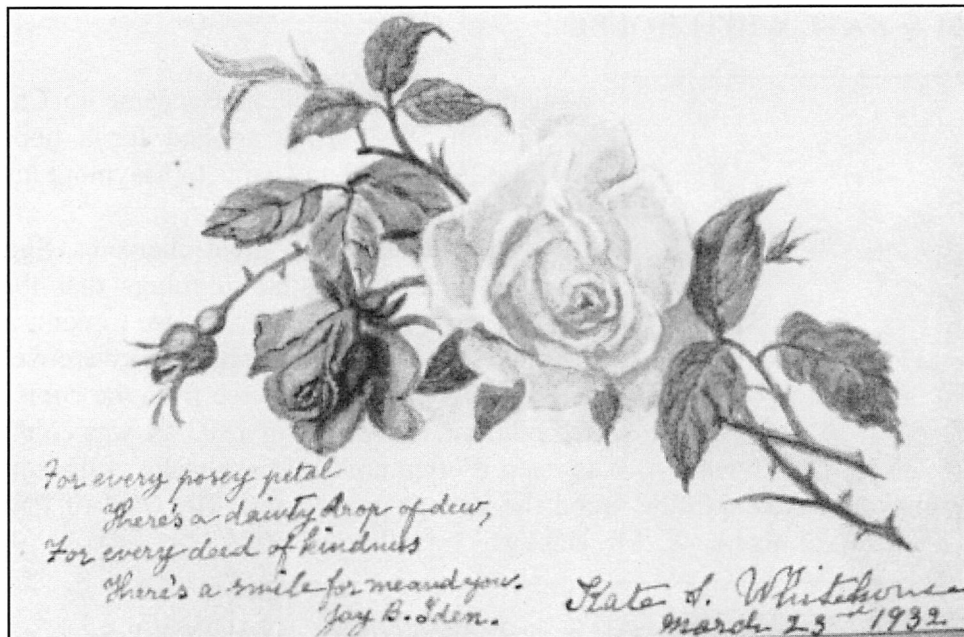 For every posey petal
There's a dainty drop of dew,
For every deed of kindness
There's a smile for me and you.
Jay B. Iden.
Kate S. Whitehouse
March 23rd 1932